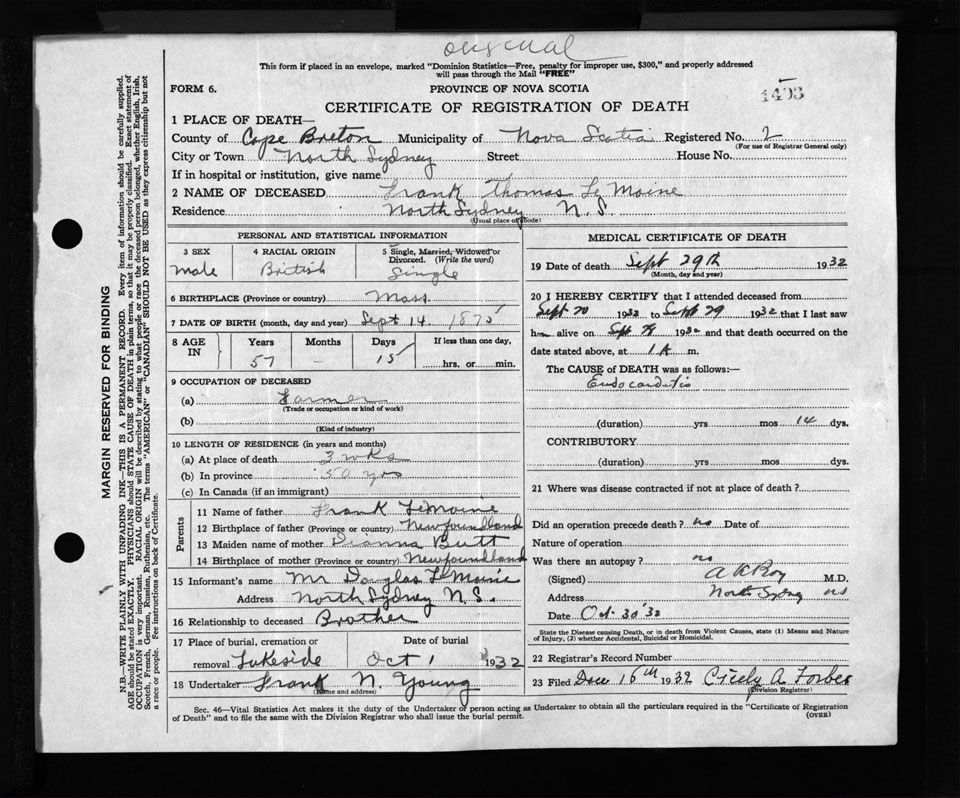 original
This form if placed in an envelope, marked "Dominion Statistics—Free, penalty for improper use, $300," and properly addressed
will pass through the Mail "FREE"
FORM 6.
PROVINCE OF NOVA SCOTIA
1403
CERTIFICATE OF REGISTRATION OF DEATH
1 PLACE OF DEATH—
County of Cape Breton Municipality of Nova Scotia Registered No. 2
(For use of Registrar General only)
City or Town North Sydney Street House No.
If in hospital or institution, give name
2 NAME OF DECEASED Frank Thomas Le Moine
Residence North Sydney N. S.
(Usual place of abode)
PERSONAL AND STATISTICAL INFORMATION
3 SEX 4 RACIAL ORIGIN 5 Single, Married, Widowed or
Divorced. (Write the word)
Male British Single
6 BIRTHPLACE (Province or country) Mass.
7 DATE OF BIRTH (month, day and year) Sept 14. 1875
8 AGE IN Years Months Days If less than one day,
57 – 15 hrs. or min.
9 OCCUPATION OF DECEASED
(a) Farmer
(Trade or occupation or kind of work)
(b)
(Kind of industry)
10 LENGTH OF RESIDENCE (in years and months)
(a) At place of death 3 wks
(b) In province 50 yrs
(c) In Canada (if an immigrant)
Parents
11 Name of father Frank LeMoine
12 Birthplace of father (Province or country) Newfoundland
13 Maiden name of mother Dianna Butt
14 Birthplace of mother (Province or country) Newfoundland
15 Informant's name Mr Douglas Le Moine
Address North Sydney N. S.
16 Relationship to deceased Brother
17 Place of burial, cremation or Date of burial
removal Lakeside Oct 1 1932
18 Undertaker Frank N. Young
(Name and address)
MEDICAL CERTIFICATE OF DEATH
19 Date of death Sept 29th 1932
(Month, day and year)
20 I HEREBY CERTIFY that I attended deceased from
Sept 20 1932 to Sept 29 1932 that I last saw
h alive on Sept 28 1932 and that death occurred on the
date stated above, at 1 A m.
The CAUSE of DEATH was as follows:—
Endocarditis
(duration) yrs mos 14 dys.
CONTRIBUTORY
(duration) yrs mos dys.
21 Where was disease contracted if not at place of death?
Did an operation precede death? no Date of
Nature of operation
Was there an autopsy? no
(Signed) A K Roy M.D.
Address North Sydney NS
Date Oct. 30 '32
State the Disease causing Death, or in death from Violent Causes, state (1) Means and Nature
of Injury, (2) whether Accidental, Suicidal or Homicidal.
22 Registrar's Record Number
23 Filed Dec 16th 1932 Cicely A. Forbes
(Division Registrar)
Sec. 46—Vital Statistics Act makes it the duty of the Undertaker or person acting as Undertaker to obtain all the particulars required in the "Certificate of Registration
of Death" and to file the same with the Division Registrar who shall issue the burial permit.
(OVER)
MARGIN RESERVED FOR BINDING
N.B.—WRITE PLAINLY WITH UNFADING INK—THIS IS A PERMANENT RECORD. Every item of information should be carefully supplied.
AGE should be stated EXACTLY. PHYSICIANS should STATE CAUSE OF DEATH in plain terms, so that it may be properly classified. Exact statement of
OCCUPATION is very important. RACIAL ORIGIN will be described by stating to what people or race the deceased person belonged, whether English, Irish,
Scotch, French, German, Russian, Ruthenian, etc. The terms "AMERICAN" or "CANADIAN" SHOULD NOT BE USED as they express citizenship but not
a race or people. Fee instructions on back of Certificate.